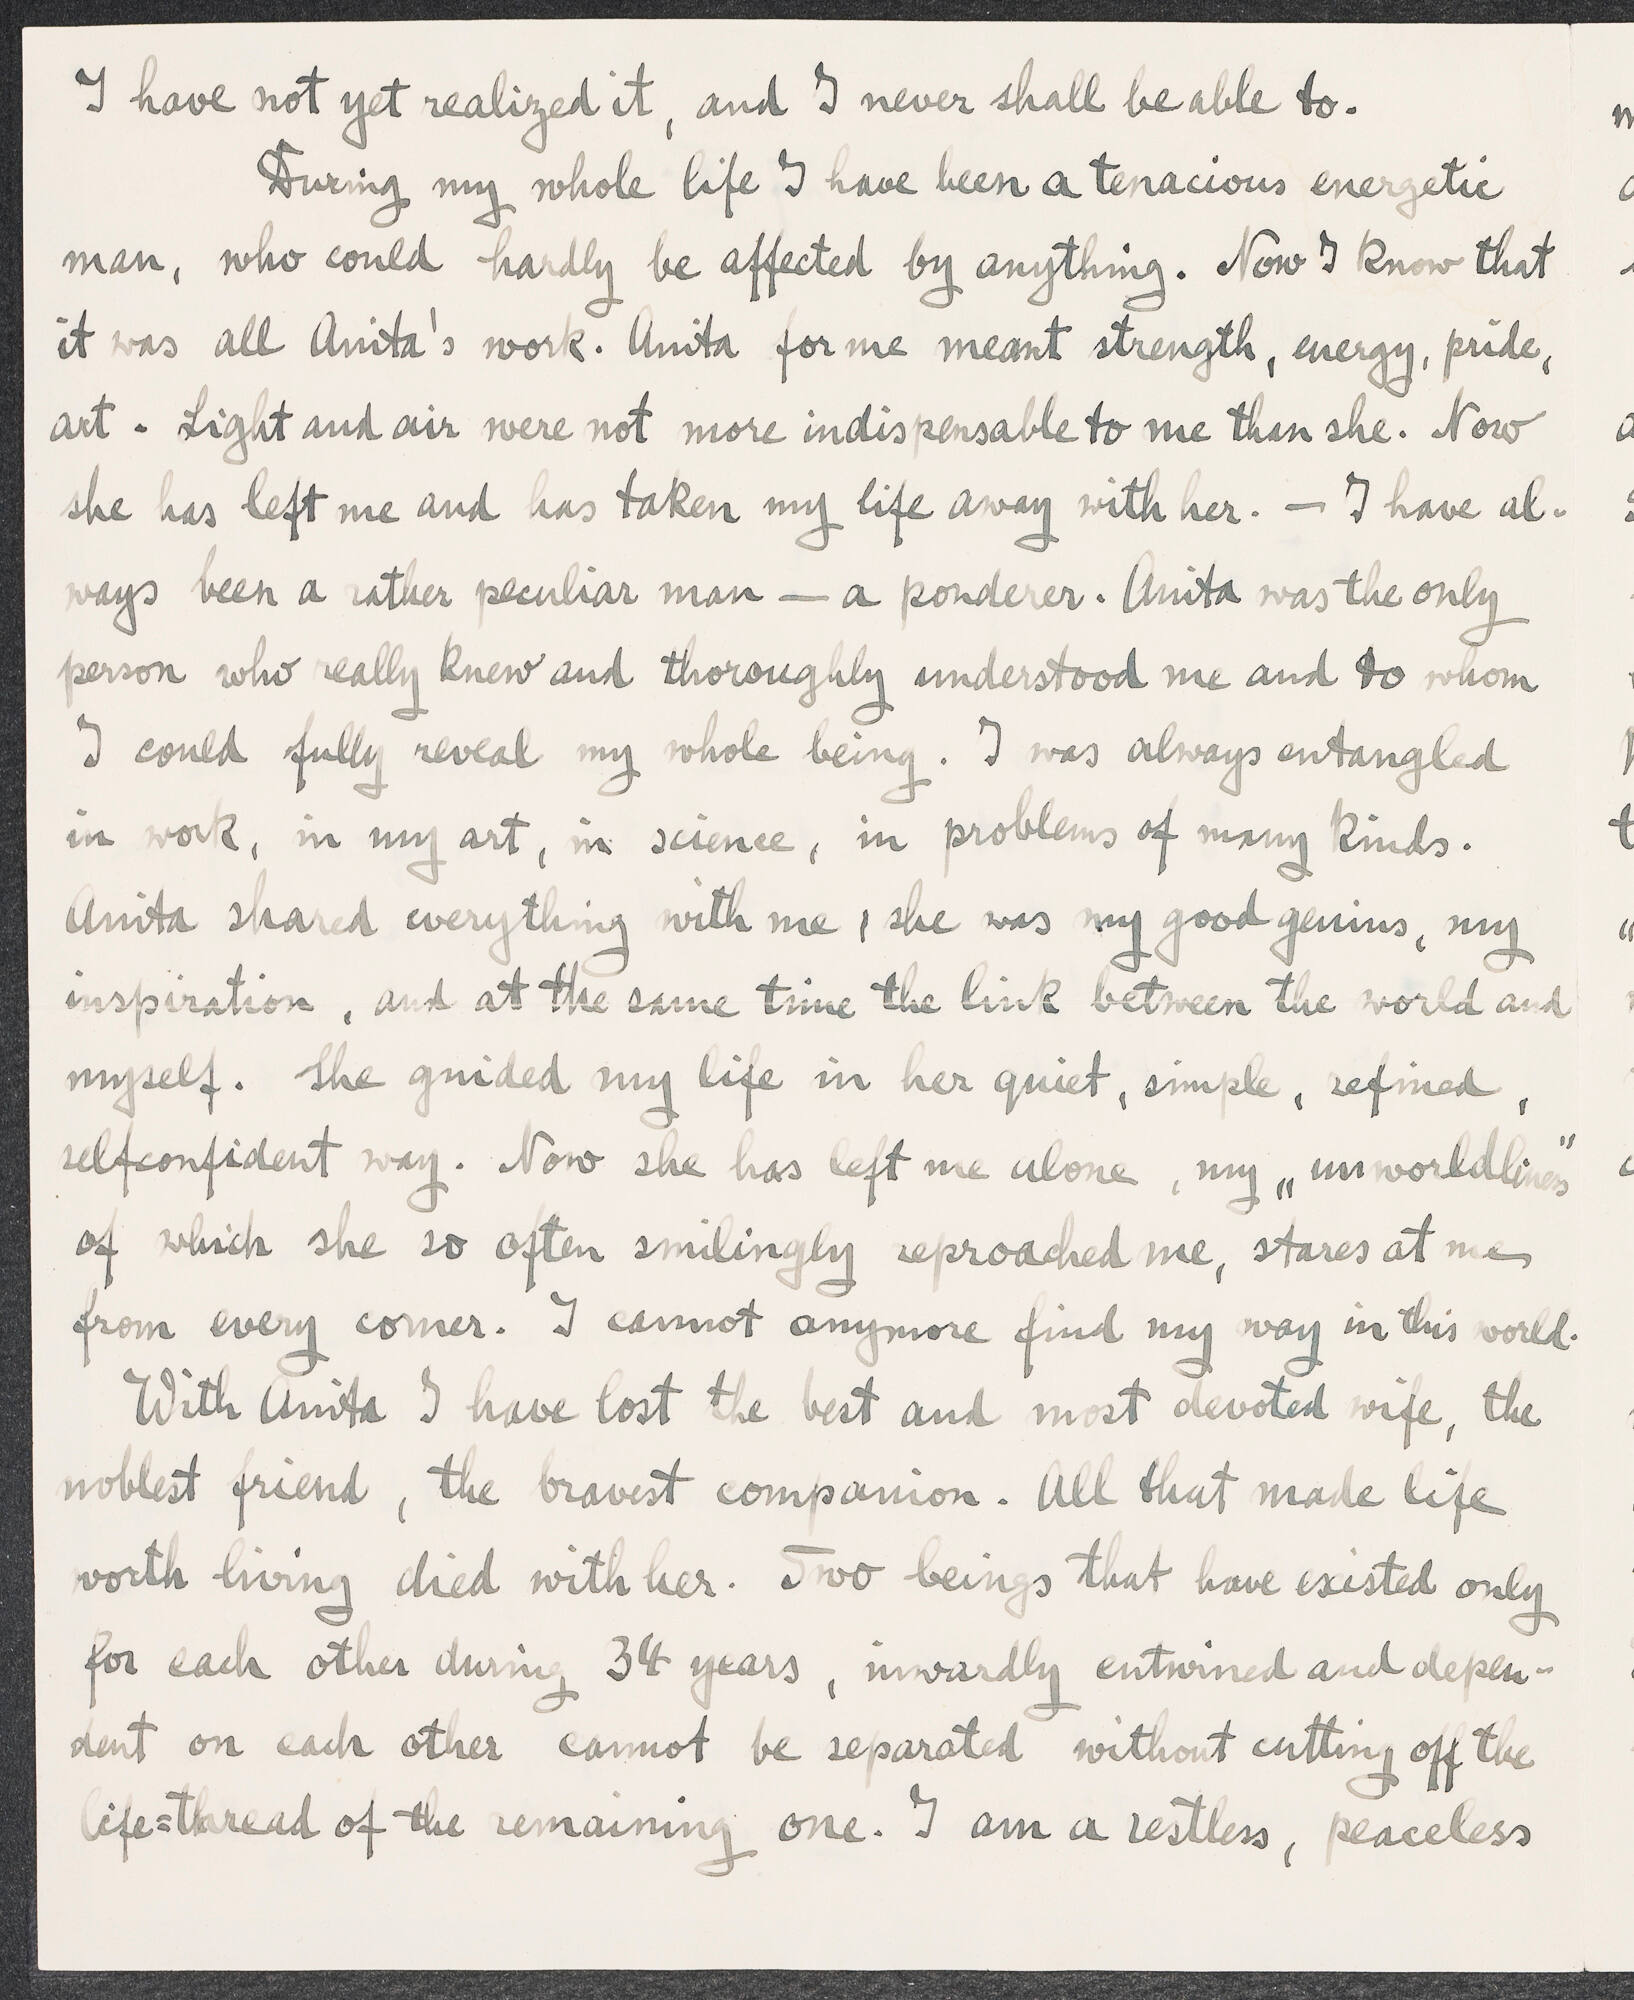 I have not yet realized it, and I never shall be able to.
During my whole life I have been a tenacious energetic
man, who could hardly be affected by anything. Now I know that
it was all Anita's work. Anita for me meant strength, energy, pride,
art. Light and air were not more indispensable to me than she. Now
she has left me and has taken my life away with her. — I have al-
ways been a rather peculiar man — a ponderer. Anita was the only
person who really knew and thoroughly understood me and to whom
I could fully reveal my whole being. I was always entangled
in work, in my art, in science, in problems of many kinds.
Anita shared everything with me, she was my good genius, my
inspiration, and at the same time the link between the world and
myself. She guided my life in her quiet, simple, refined,
selfconfident way. Now she has left me alone, my „unworldliness"
of which she so often smilingly reproached me, stares at me
from every corner. I cannot anymore find my way in this world.
With Anita I have lost the best and most devoted wife, the
noblest friend, the bravest companion. All that made life
worth living died with her. Two beings that have existed only
for each other during 34 years, inwardly entwined and depen-
dent on each other cannot be separated without cutting off the
life=thread of the remaining one. I am a restless, peaceless